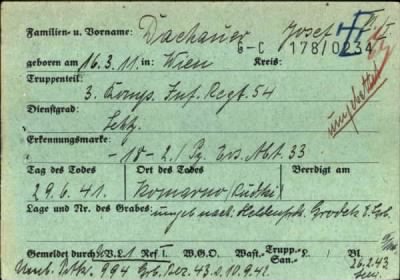 Familien- u. Vorname: Dachauer Josef
G-C 178/0234
geboren am 16.3.11 in: Wien Kreis:
Truppenteil:
3. Komp. Inf. Regt. 54
Dienstgrad:
Schtz.
Erkennungsmarke:
-18- 2./ Pz. Ers. Abt. 33
Tag des Todes Ort des Todes Beerdigt am
29.6.41. Komarno (Rudki)
Lage und Nr. des Grabes: umgeb. nach Heldenfrdh. Grodek
Gemeldet durch: W.G.O. Wast.- Trupp.- San.- L. Bl.
Umb. Mtk. 994 43 10.9.42. 26.2.43